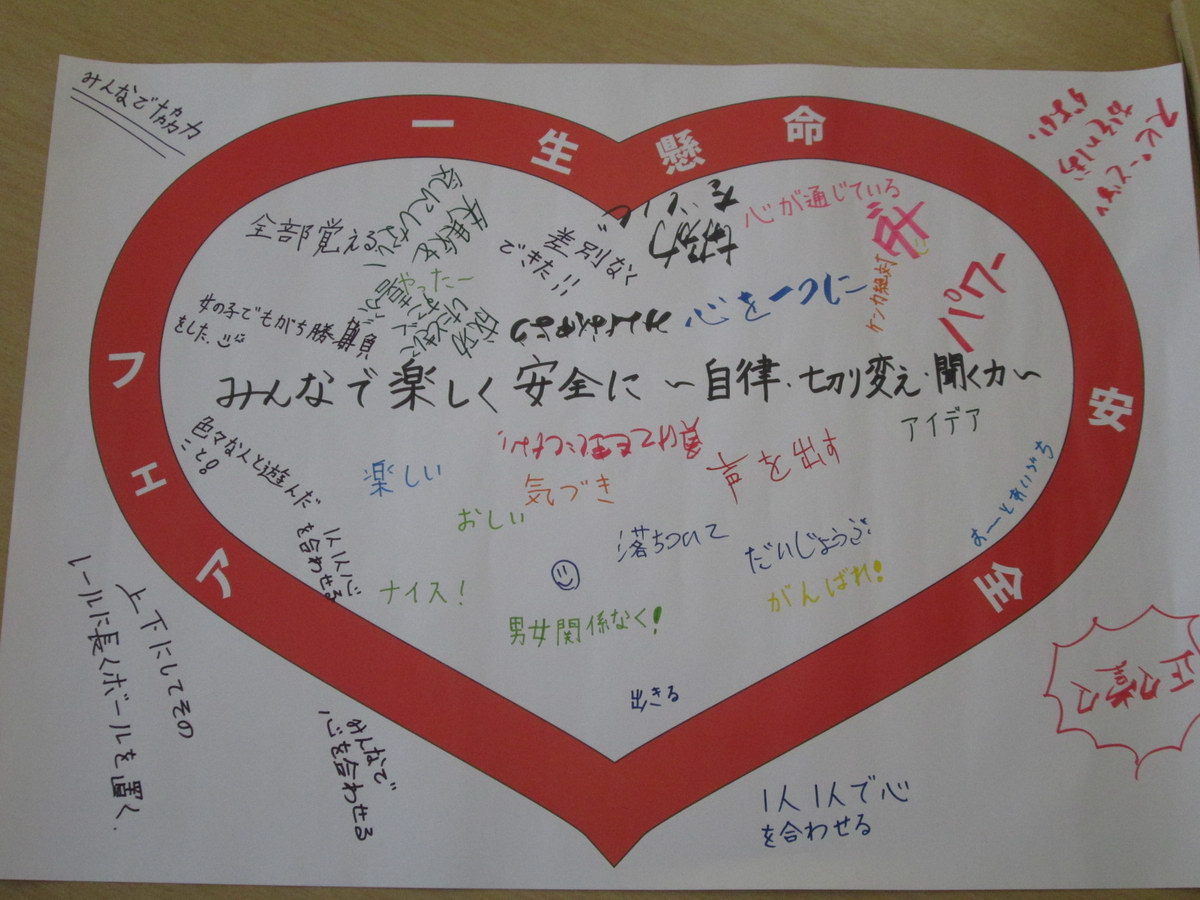 みんなで協力
一生懸命
安全
フェア
全部覚える
失敗を
気にしない
やったー
成功
差別なく
できた!!
努力
心が通じている
絆
ケンカ絶対
パワー
心を一つに
女の子でもがち勝負
をした。
みんなで楽しく安全に ～自律・切り変え・聞く力～
アイデア
負けても気にしない
声を出す
色々な人と遊んだ
こと!
楽しい
気づき
おしい
落ちついて
だいじょうぶ!
がんばれ!
1人1人心
を合わせる
ナイス!
男女関係なく!
出きる
上下にしてその
レールに長くボールを置く.
みんなで
心を合わせる
1人1人で心
を合わせる